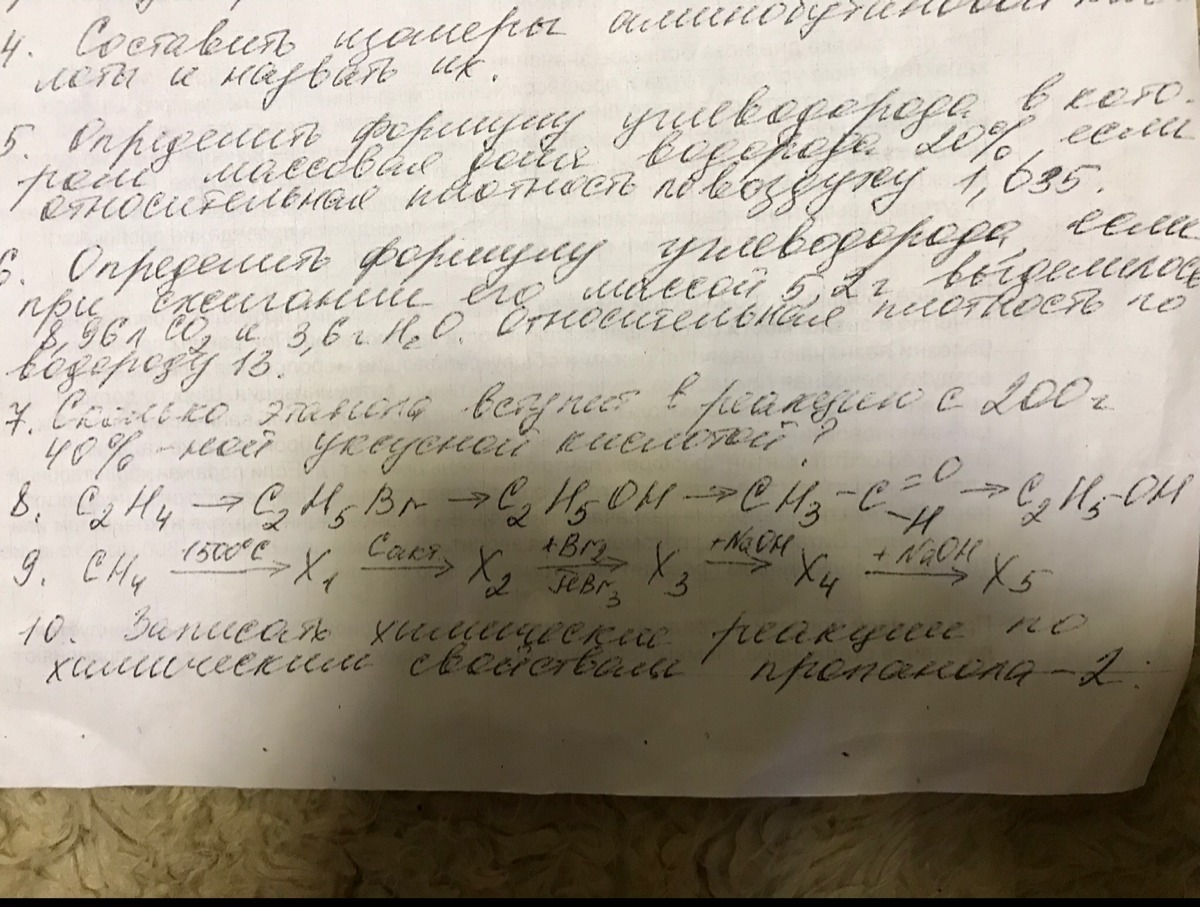 4. Составить изомеры аминобутановой кис-
лоты и назвать их.
5. Определить формулу углеводорода в кото-
ром массовая доля водорода 20%, если
относительная плотность по воздуху 1,035.
6. Определить формулу углеводорода, если
при сжигании его массой 5,2г выделилось
8,96л CO₂ и 3,6г H₂O. Относительная плотность по
водороду 13.
7. Сколько этанола вступит в реакцию с 200г
40%-ной уксусной кислотой?
8. C₂H₄ → C₂H₅Br → C₂H₅OH → CH₃-C=O-H → C₂H₅-OH
9. CH₄ 1500°C → X₁ Cакт → X₂ +Br₂ FeBr₃ → X₃ +NaOH → X₄ +NaOH → X₅
10. Записать химические реакции по
химическим свойствам пропанола-2.